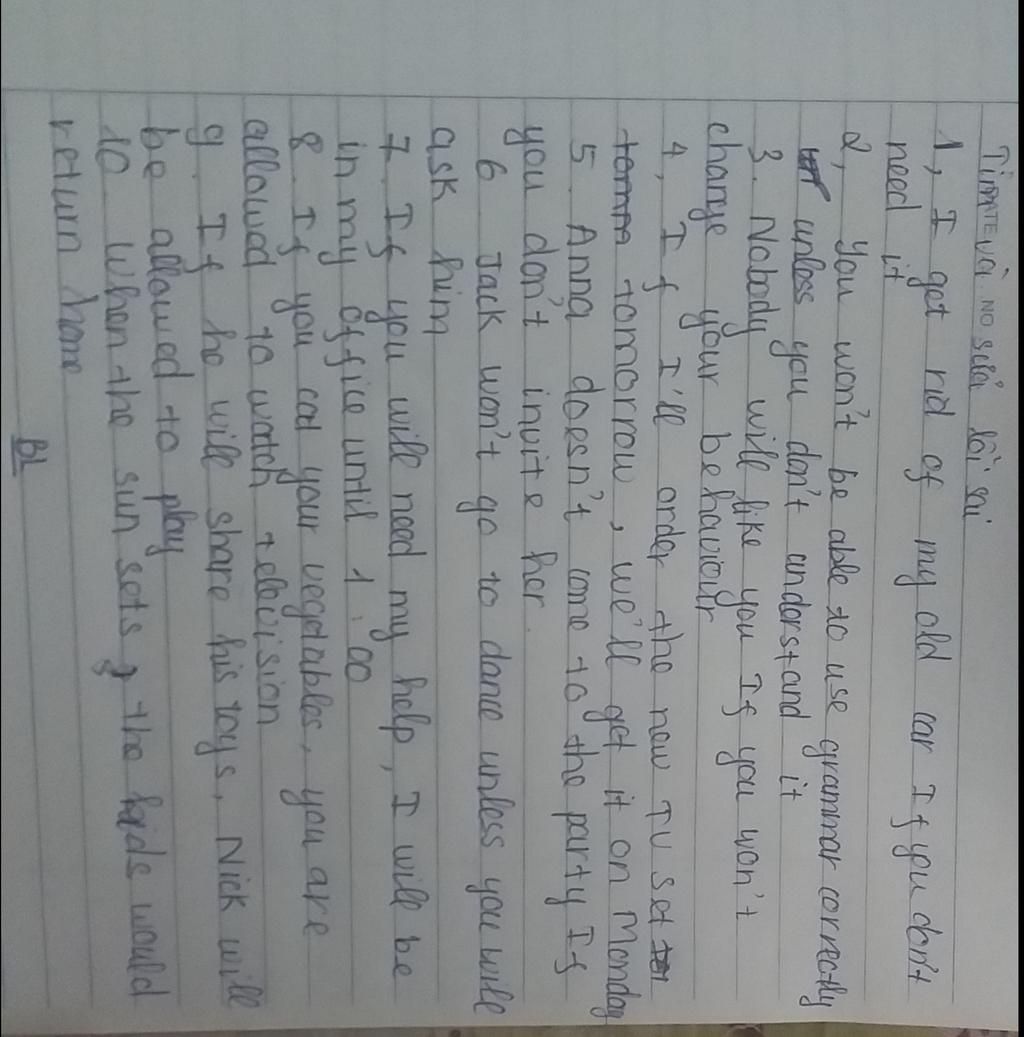 Tìm và sửa lỗi sai
1, I get rid of my old car If you don't
need it
2, you won't be able to use grammar correctly
unless you don't understand it
3. Nobody will like you If you won't
change your behaviour
4, If I'll order the new TV set
tomorrow, we'll get it on Monday
5 Anna doesn't come to the party If
you don't invite her.
6 Jack won't go to dance unless you will
ask him
7 If you will need my help, I will be
in my office until 1:00
8 If you eat your vegetables, you are
allowed to watch television
9 If he will share his toys, Nick will
be allowed to play
10 When the sun sets, the kids would
return home
BL